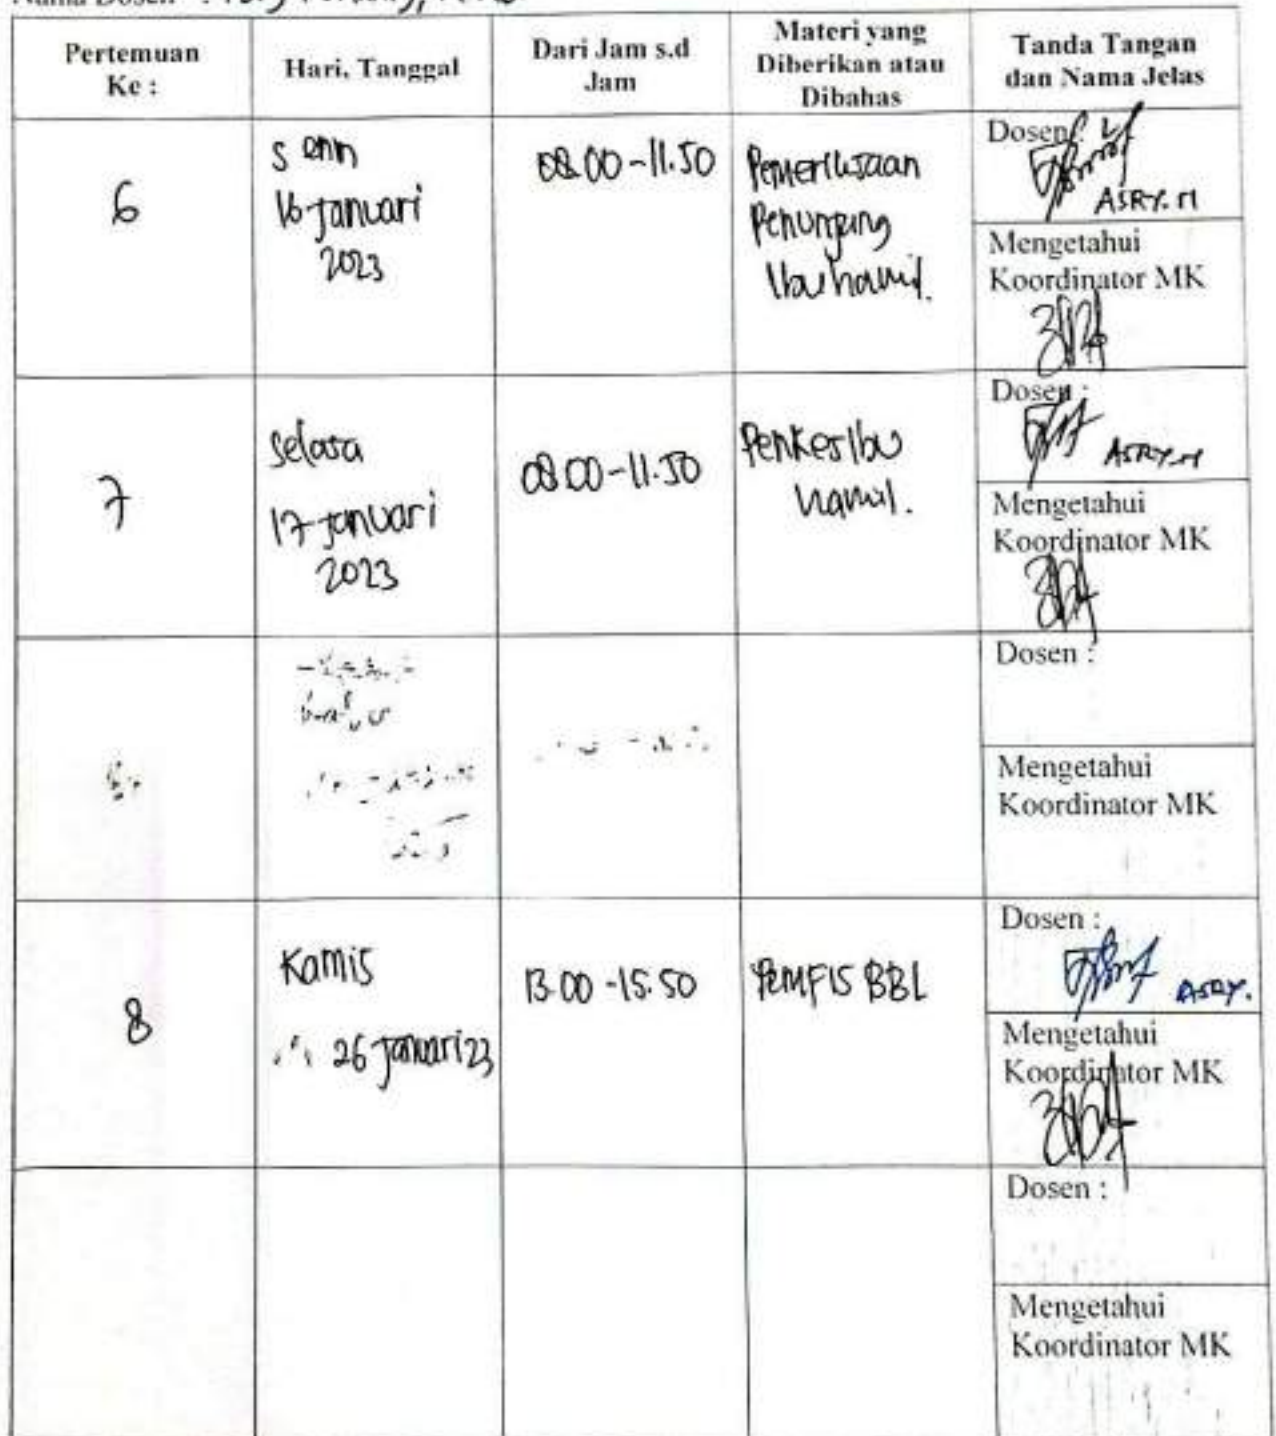 Nama Dosen :
Pertemuan
Ke :
Hari, Tanggal
Dari Jam s.d
Jam
Materi yang
Diberikan atau
Dibahas
Tanda Tangan
dan Nama Jelas
6
Senin
16 Januari
2023
08.00-11.50
Pemeriksaan
Penunjang
Ibu hamil.
Dosen :
ASRY.M
Mengetahui
Koordinator MK
7
Selasa
17 Januari
2023
08.00-11.50
Penkes Ibu
hamil.
Dosen :
ASRY.M
Mengetahui
Koordinator MK
Dosen :
Mengetahui
Koordinator MK
8
Kamis
26 Januari 23
13.00-15.50
PEMFIS BBL
Dosen :
ASRY.
Mengetahui
Koordinator MK
Dosen :
Mengetahui
Koordinator MK